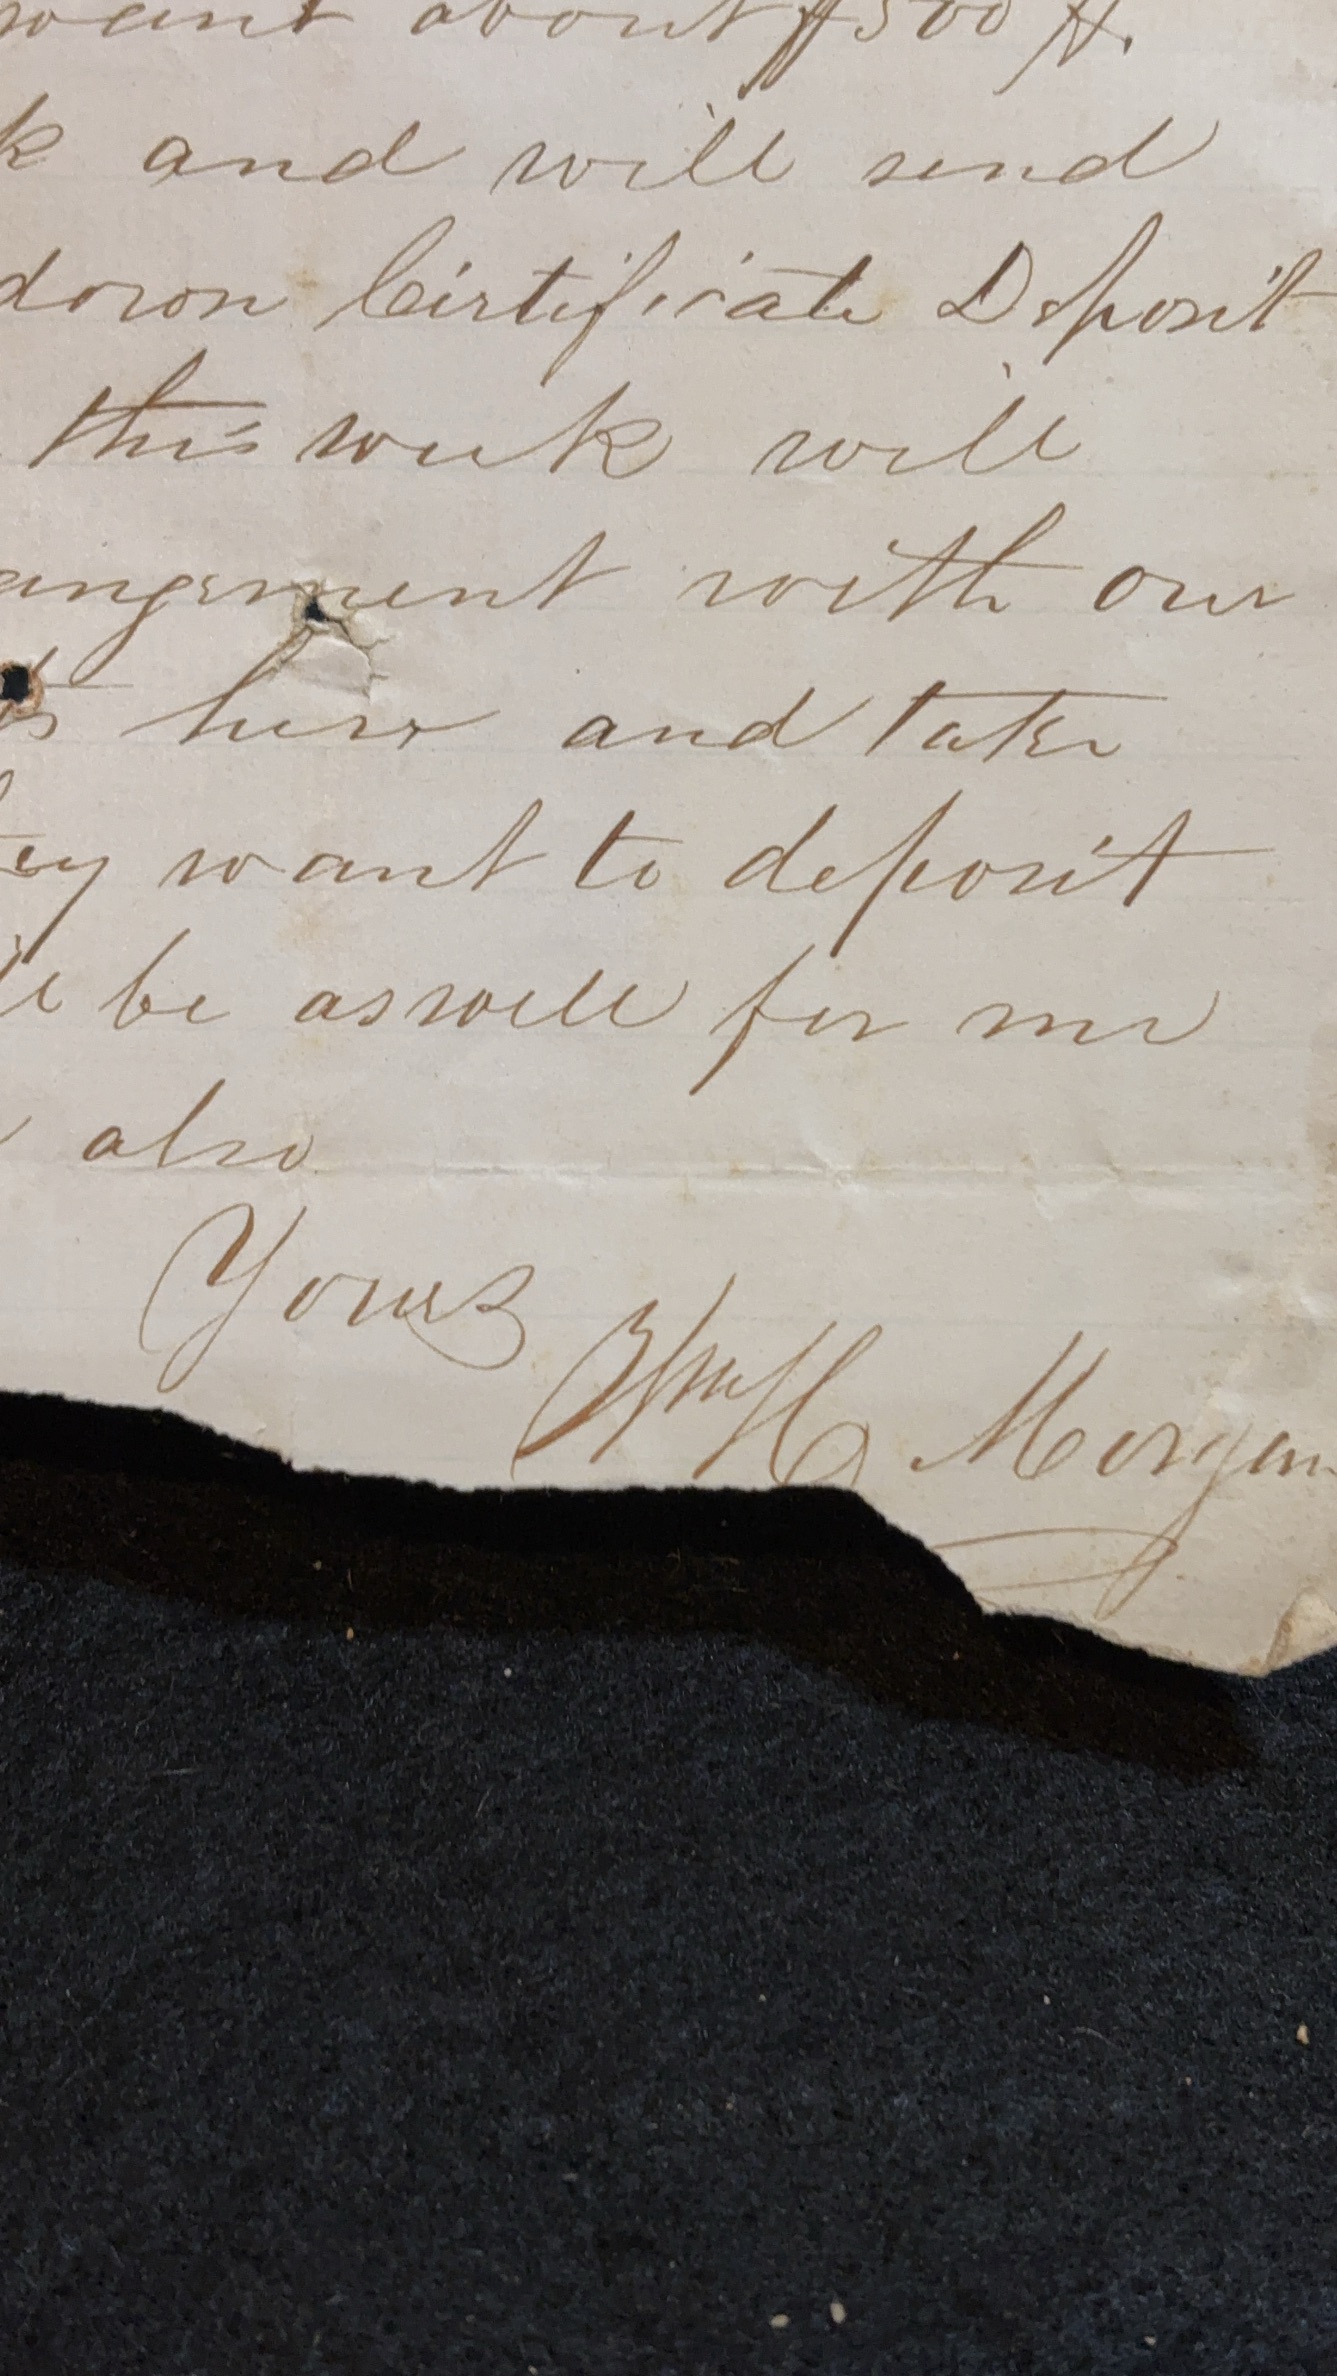 want about $500 ft.
k and will send
down Certificate Deposit
this week will
angement with our
ts here and take
ey want to deposit
ll be aswell for me
also
Yours
Wm H Morgan